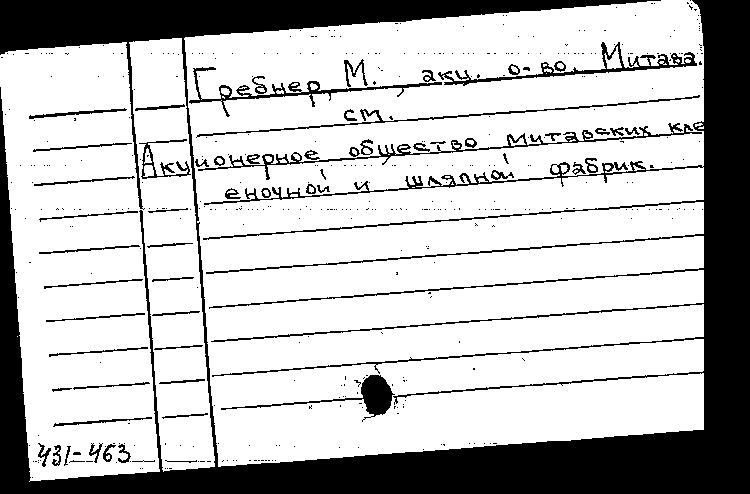 Гребнер, М., акц. о-во. Митава.
см.
Акционерное общество митавских кле
еночной и шляпной фабрик.
431-463